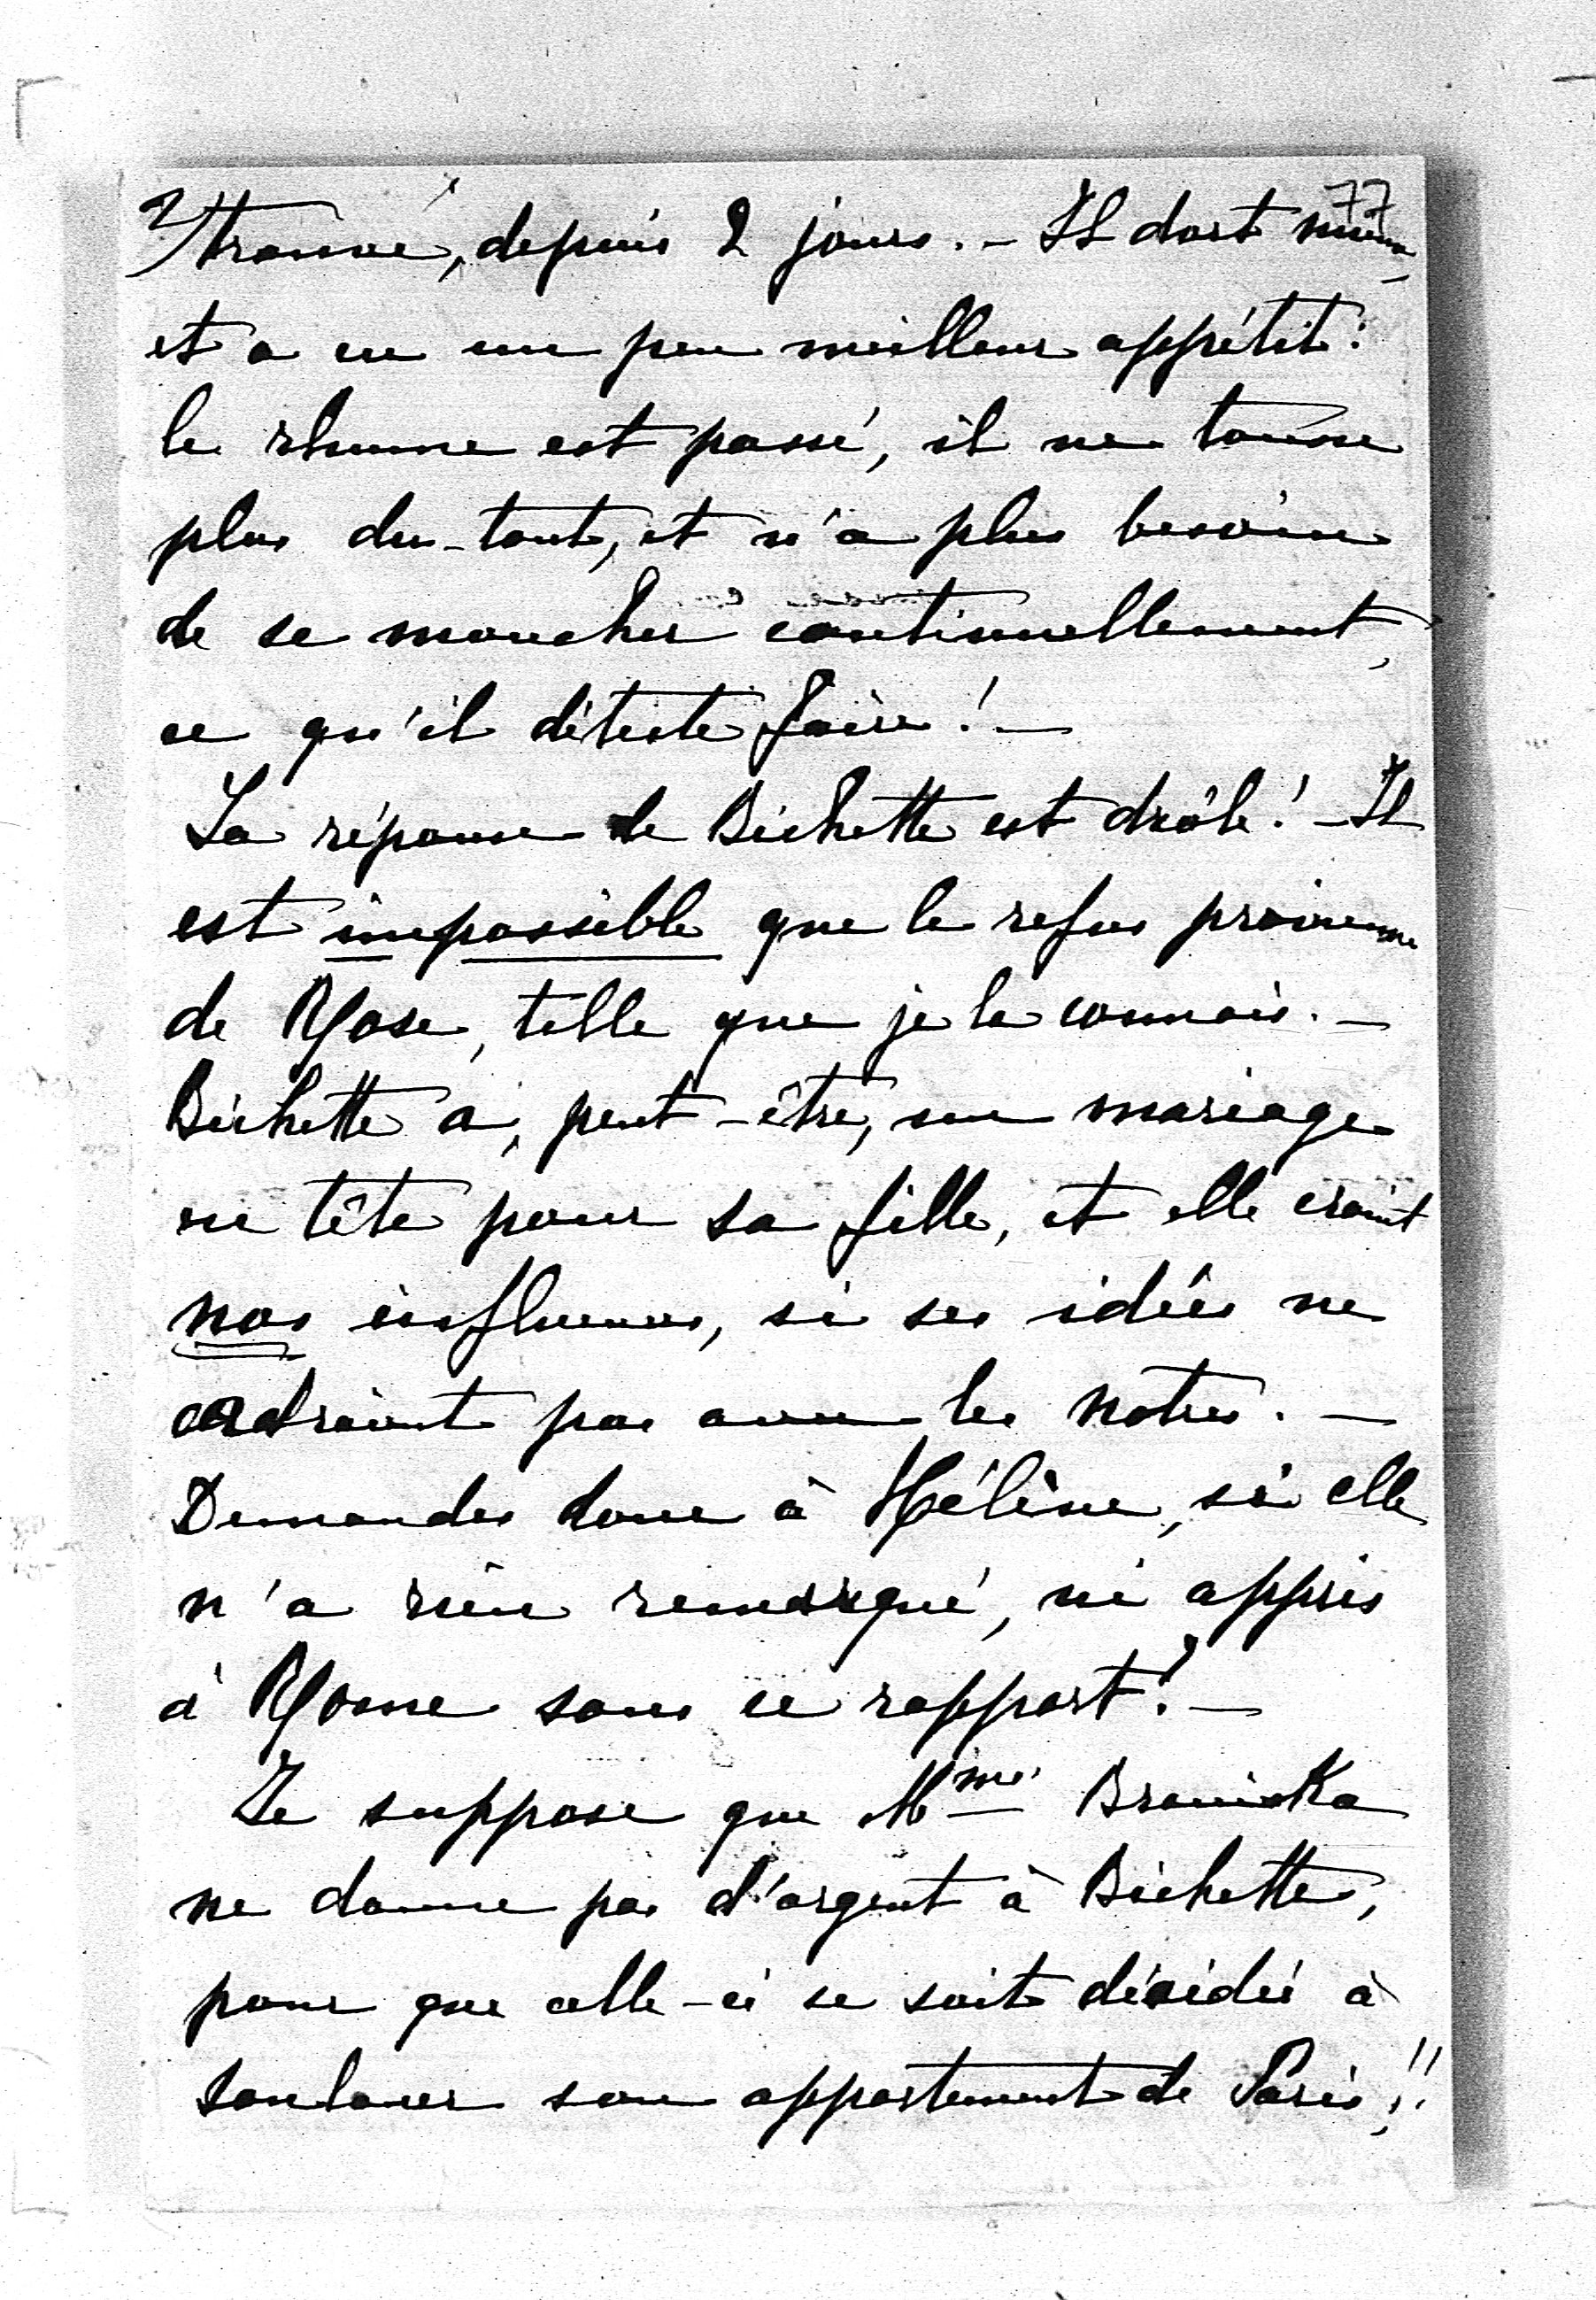 77
2/ trouvé, depuis 2 jours. – Il dort mieux,
et a eu un peu meilleur appétit:
le rhume est passé, il ne tousse
plus du-tout, et n'a plus besoin
de se moucher continuellement,
ce qu'il déteste faire! –
La réponse de Bichette est drôle! – Il
est impossible que le refus provienne
de Rose, telle que je la connais. –
Bichette a, peut-être, un mariage
en tête pour sa fille, et elle craint
nos influences, si ses idées ne
cadraient pas avec les notres. –
Demandes donc à Hélène, si elle
n'a rien remarqué, ni appris
à Rome sous ce rapport? –
Je suppose que Mme Branicka
ne donne pas d'argent à Bichette,
pour que celle-ci se soit décidée à
souslouer son appartement de Paris!!